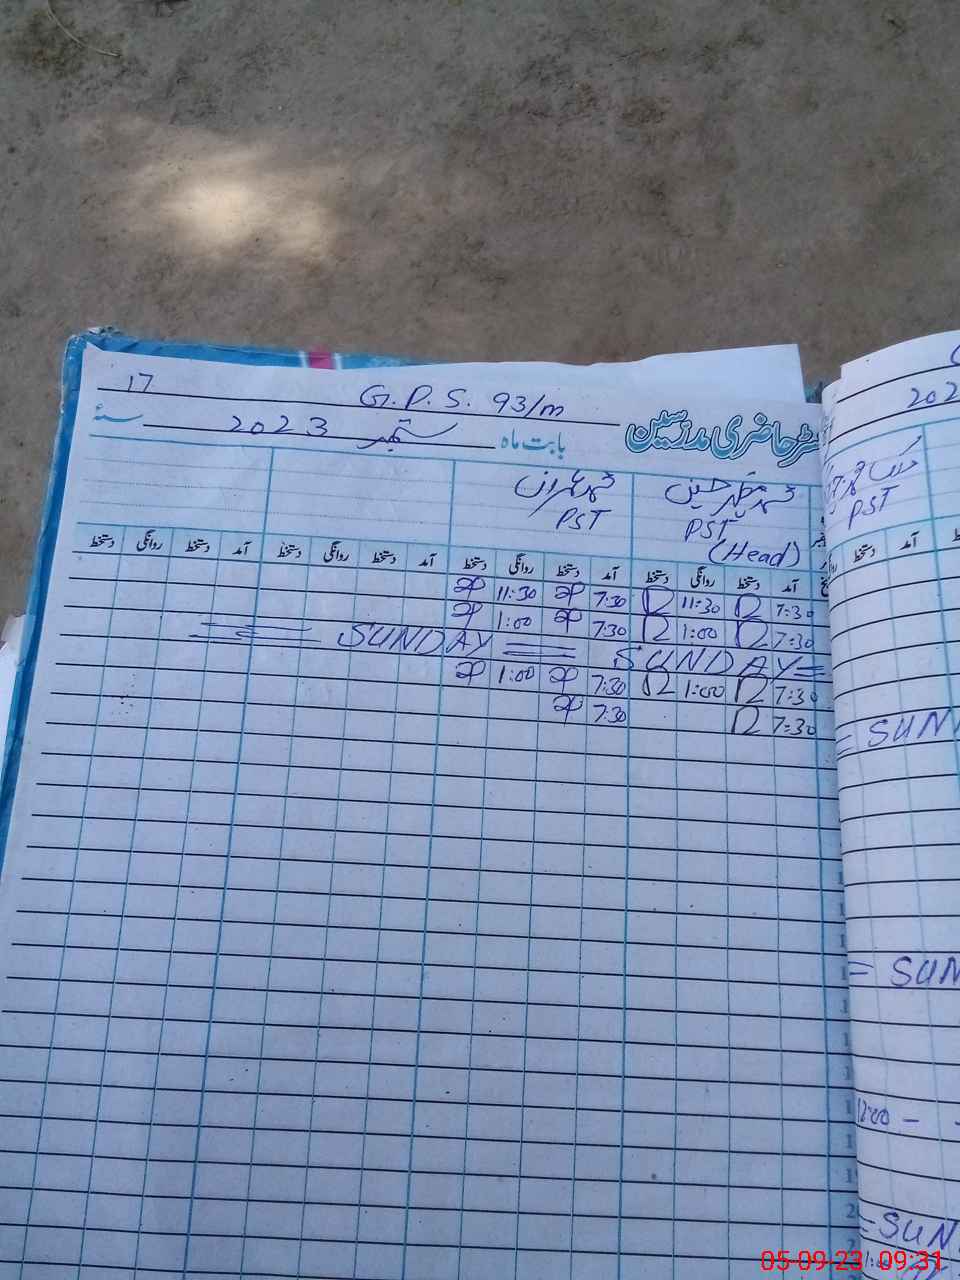 17 G.P.S. 93/m
رجسٹر حاضری مدرسین بابت ماہ ستمبر 2023 سنہ
محمد مظہر حسین محمد عمران
PST PST
(Head)
آمد دستخط روانگی دستخط آمد دستخط روانگی دستخط آمد دستخط روانگی دستخط آمد دستخط روانگی دستخط
7:30 11:30 7:30 11:30
7:30 1:00 7:30 1:00
SUNDAY = SUNDAY =
7:30 1:00 7:30 1:00
7:30 7:30
202
PST
دستخط آمد
= SUN
= SUN
12:00 -
= SUN
1:00
05-09-23 09:31